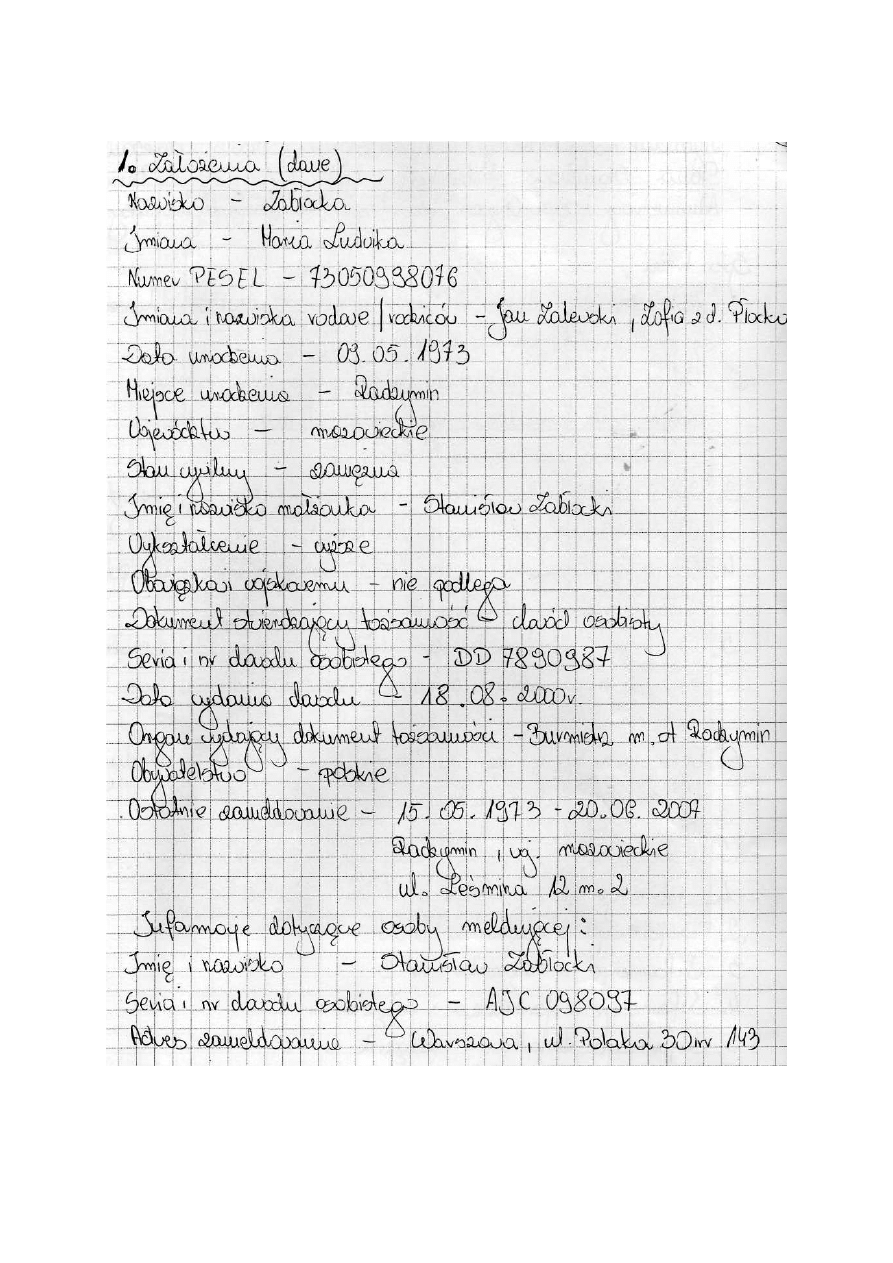 1. Założenia (dane)
Nazwisko - Zabłocka
Imiona - Maria Ludwika
Numer PESEL - 73050998076
Imiona i nazwiska rodowe/rodziców - Jan Zalewski, Zofia z d. Płocka
Data urodzenia - 09.05.1973
Miejsce urodzenia - Radzymin
Województwo - mazowieckie
Stan cywilny - zamężna
Imię i nazwisko małżonka - Stanisław Zabłocki
Wykształcenie - wyższe
Obowiązkowi wojskowemu - nie podlega
Dokument stwierdzający tożsamość - dowód osobisty
Seria i nr dowodu osobistego - DD 7890987
Data wydania dowodu - 18.08.2000r.
Organ wydający dokument tożsamości - Burmistrz m. st Radzymin
Obywatelstwo - polskie
Ostatnie zameldowanie - 15.05.1973 - 20.06.2007
Radzymin, woj. mazowieckie
ul. Leśmina 12 m. 2
Informacje dotyczące osoby meldującej:
Imię i nazwisko - Stanisław Zabłocki
Seria i nr dowodu osobistego - AJC 098097
Adres zameldowania - Warszawa, ul. Polaka 30 nr 143